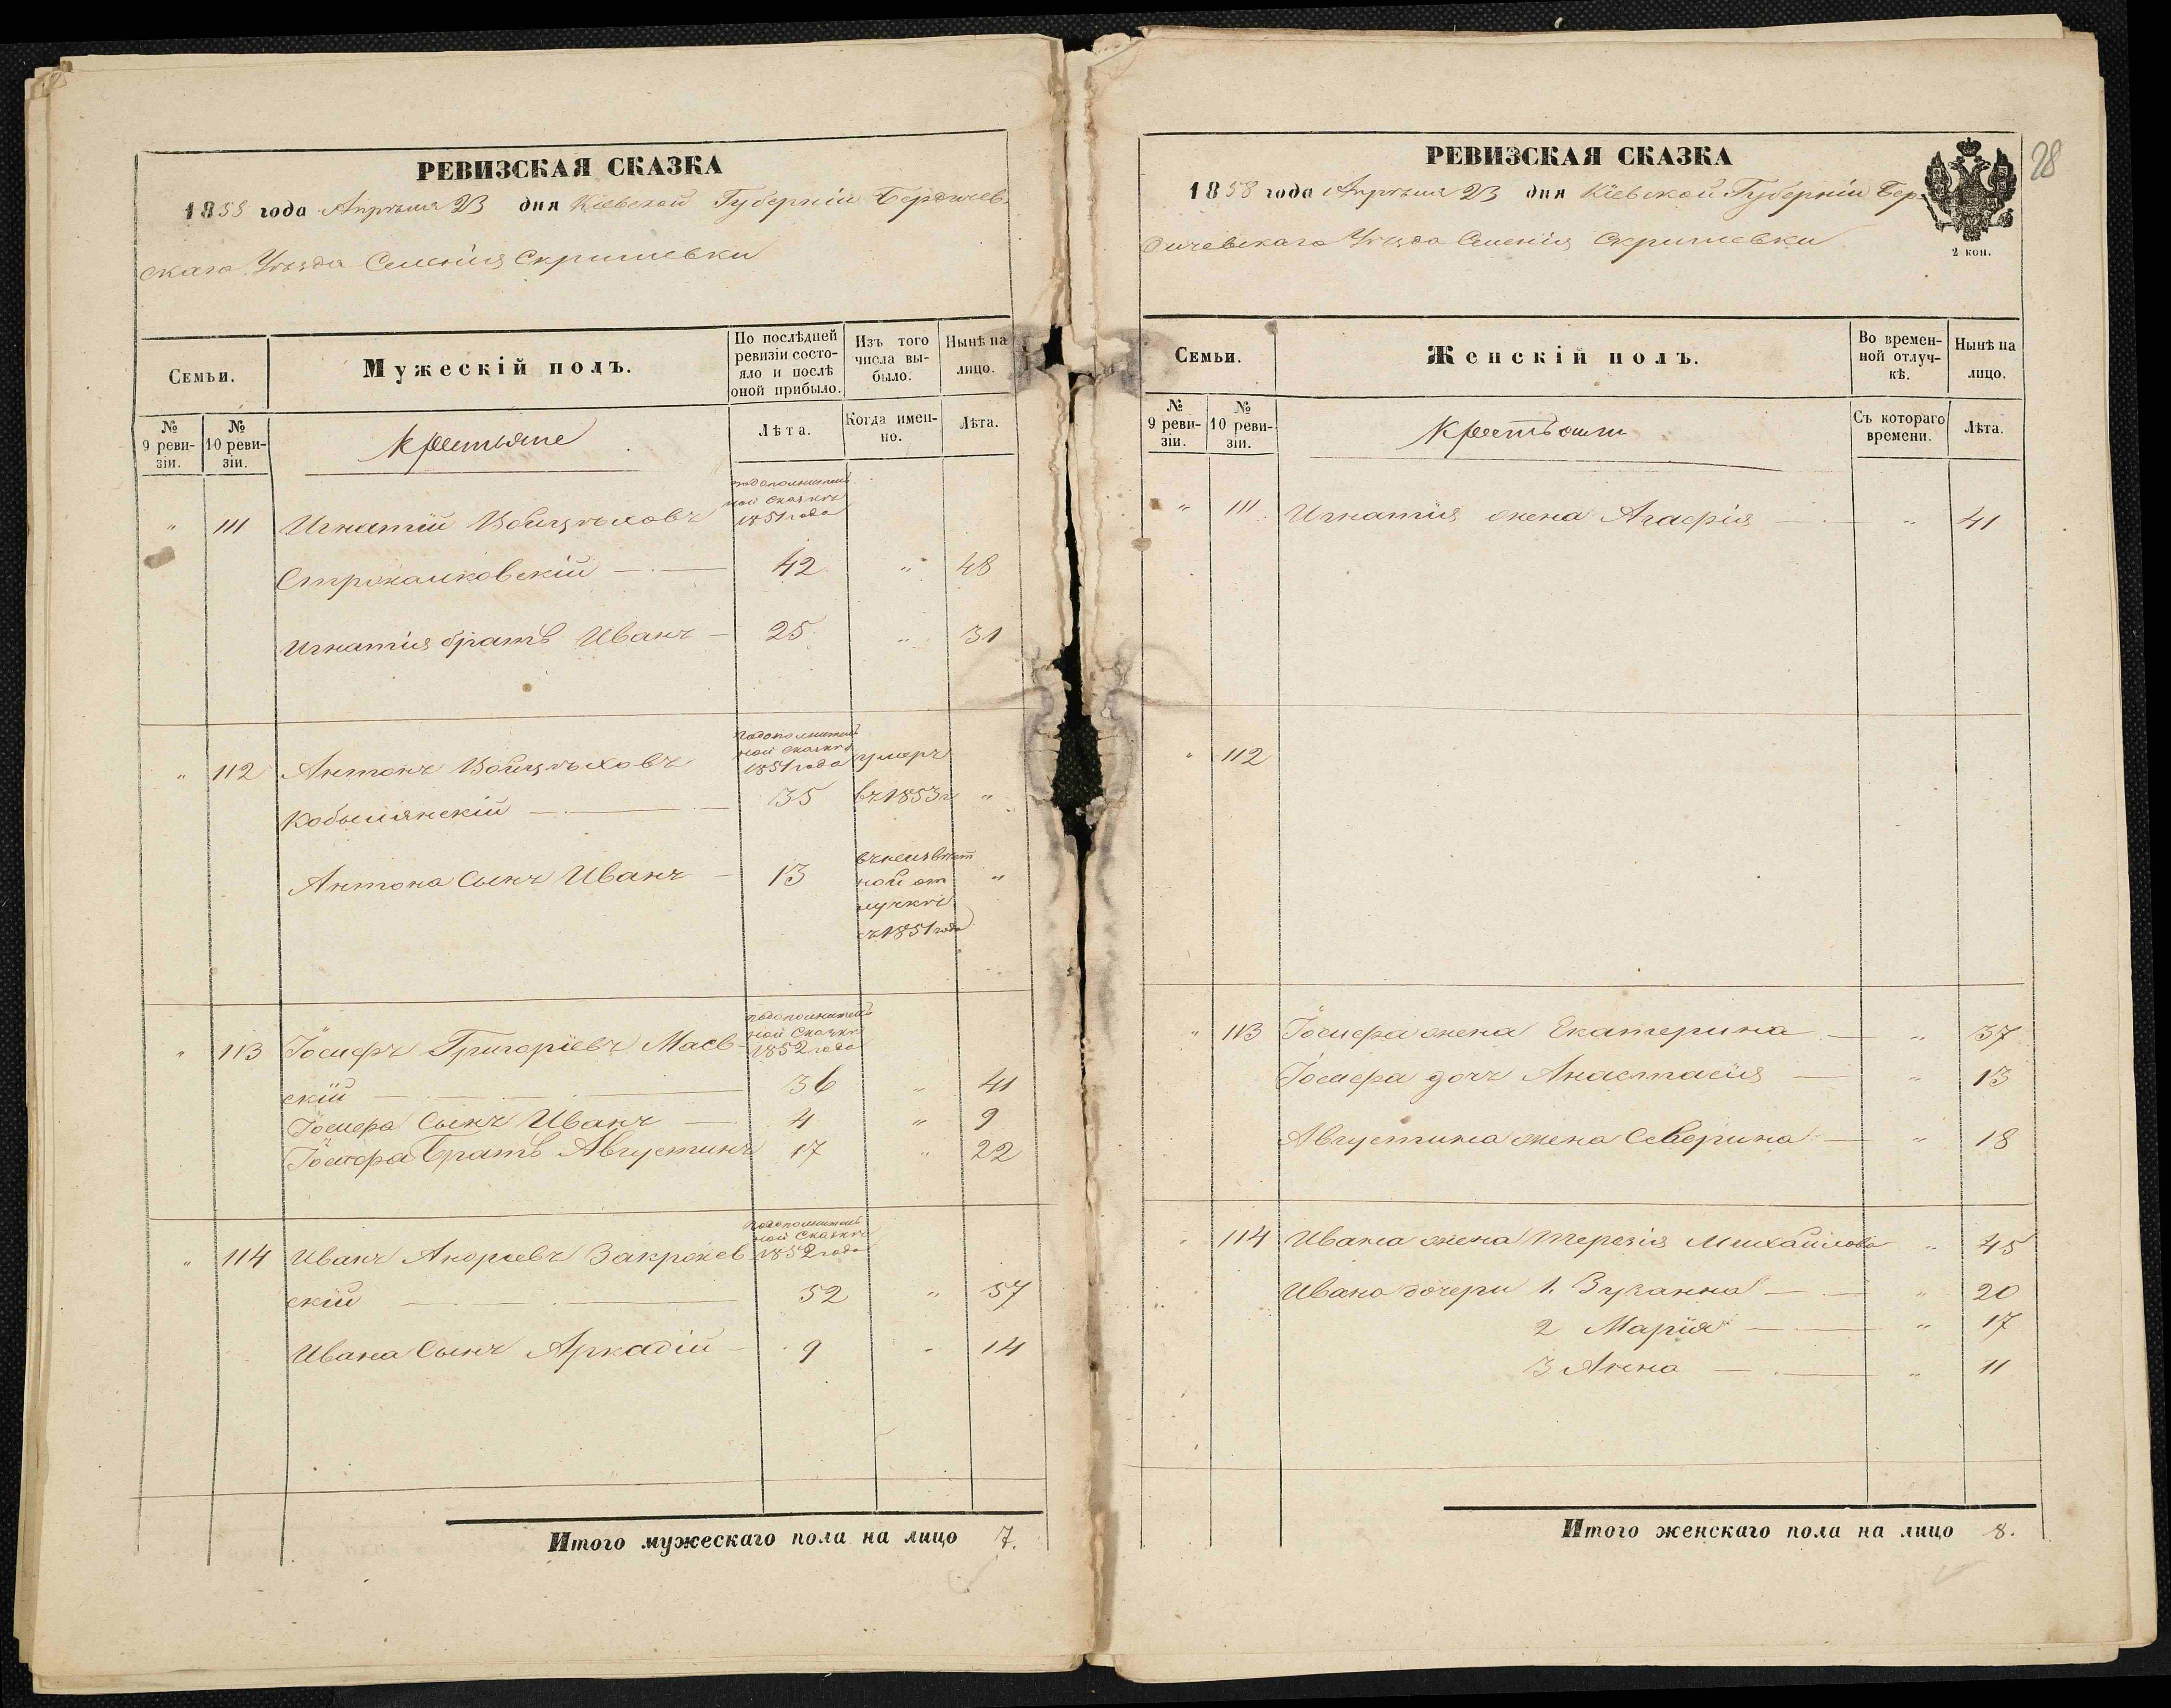 РЕВИЗСКАЯ СКАЗКА
1858 года Апрѣля 23 дня Кіевской Губерніи Бердичев-
скаго Уѣзда Селенія Скришевки
Семьи.
Мужескій полъ.
По послѣдней ревизіи состояло и послѣ оной прибыло.
Изъ того числа выбыло.
Нынѣ на лицо.
№ 9 ревизіи.
№ 10 ревизіи.
Крестьяне
Лѣта.
Когда именно.
Лѣта.
подополнитель
ной сказкѣ
„ 111 Игнатій Войцѣховъ 1851 года
42 „ 48
Игнатія братъ Иванъ — 25 „ 31
подополнитель
ной сказкѣ
„ 112 Антонъ Войцѣховъ 1851 года умеръ
Кобылянскій — 35 въ 1853 г „
Антона Сынъ Иванъ — 13 въ неизвѣст „
ной от
лучкѣ
съ 1851 года
подополнитель
ной Сказкѣ
„ 113 Іосифъ Григоріевъ Маев- 1852 года
скій — 36 „ 41
Іосифа Сынъ Иванъ — 4 „ 9
Іосифа Братъ Августинъ 17 „ 22
подополнитель
ной Сказкѣ
„ 114 Иванъ Андреевъ Закржев 1852 года
скій — 52 „ 57
Ивана Сынъ Аркадій — 9 „ 14
Итого мужескаго пола на лицо 7.
28
РЕВИЗСКАЯ СКАЗКА
1858 года Апрѣля 23 дня Кіевской Губерніи Бер-
дичевскаго Уѣзда Селенія Скришевки
2 коп.
Семьи.
Женскій полъ.
Во временной отлучкѣ.
Нынѣ на лицо.
№ 9 ревизіи.
№ 10 ревизіи.
Крестьяне
Съ котораго времени.
Лѣта.
„ 111 Игнатія жена Агафія — „ 41
„ 112
„ 113 Іосифа жена Екатерина — „ 37
Іосифа дочь Анастасія — „ 13
Августина жена Северина — „ 18
„ 114 Ивана жена Терезія Михайлова „ 45
„ Ивана дочери 1. Зузанна — „ 20
2 Марія — „ 17
3 Анна — „ 11
Итого женскаго пола на лицо 8.